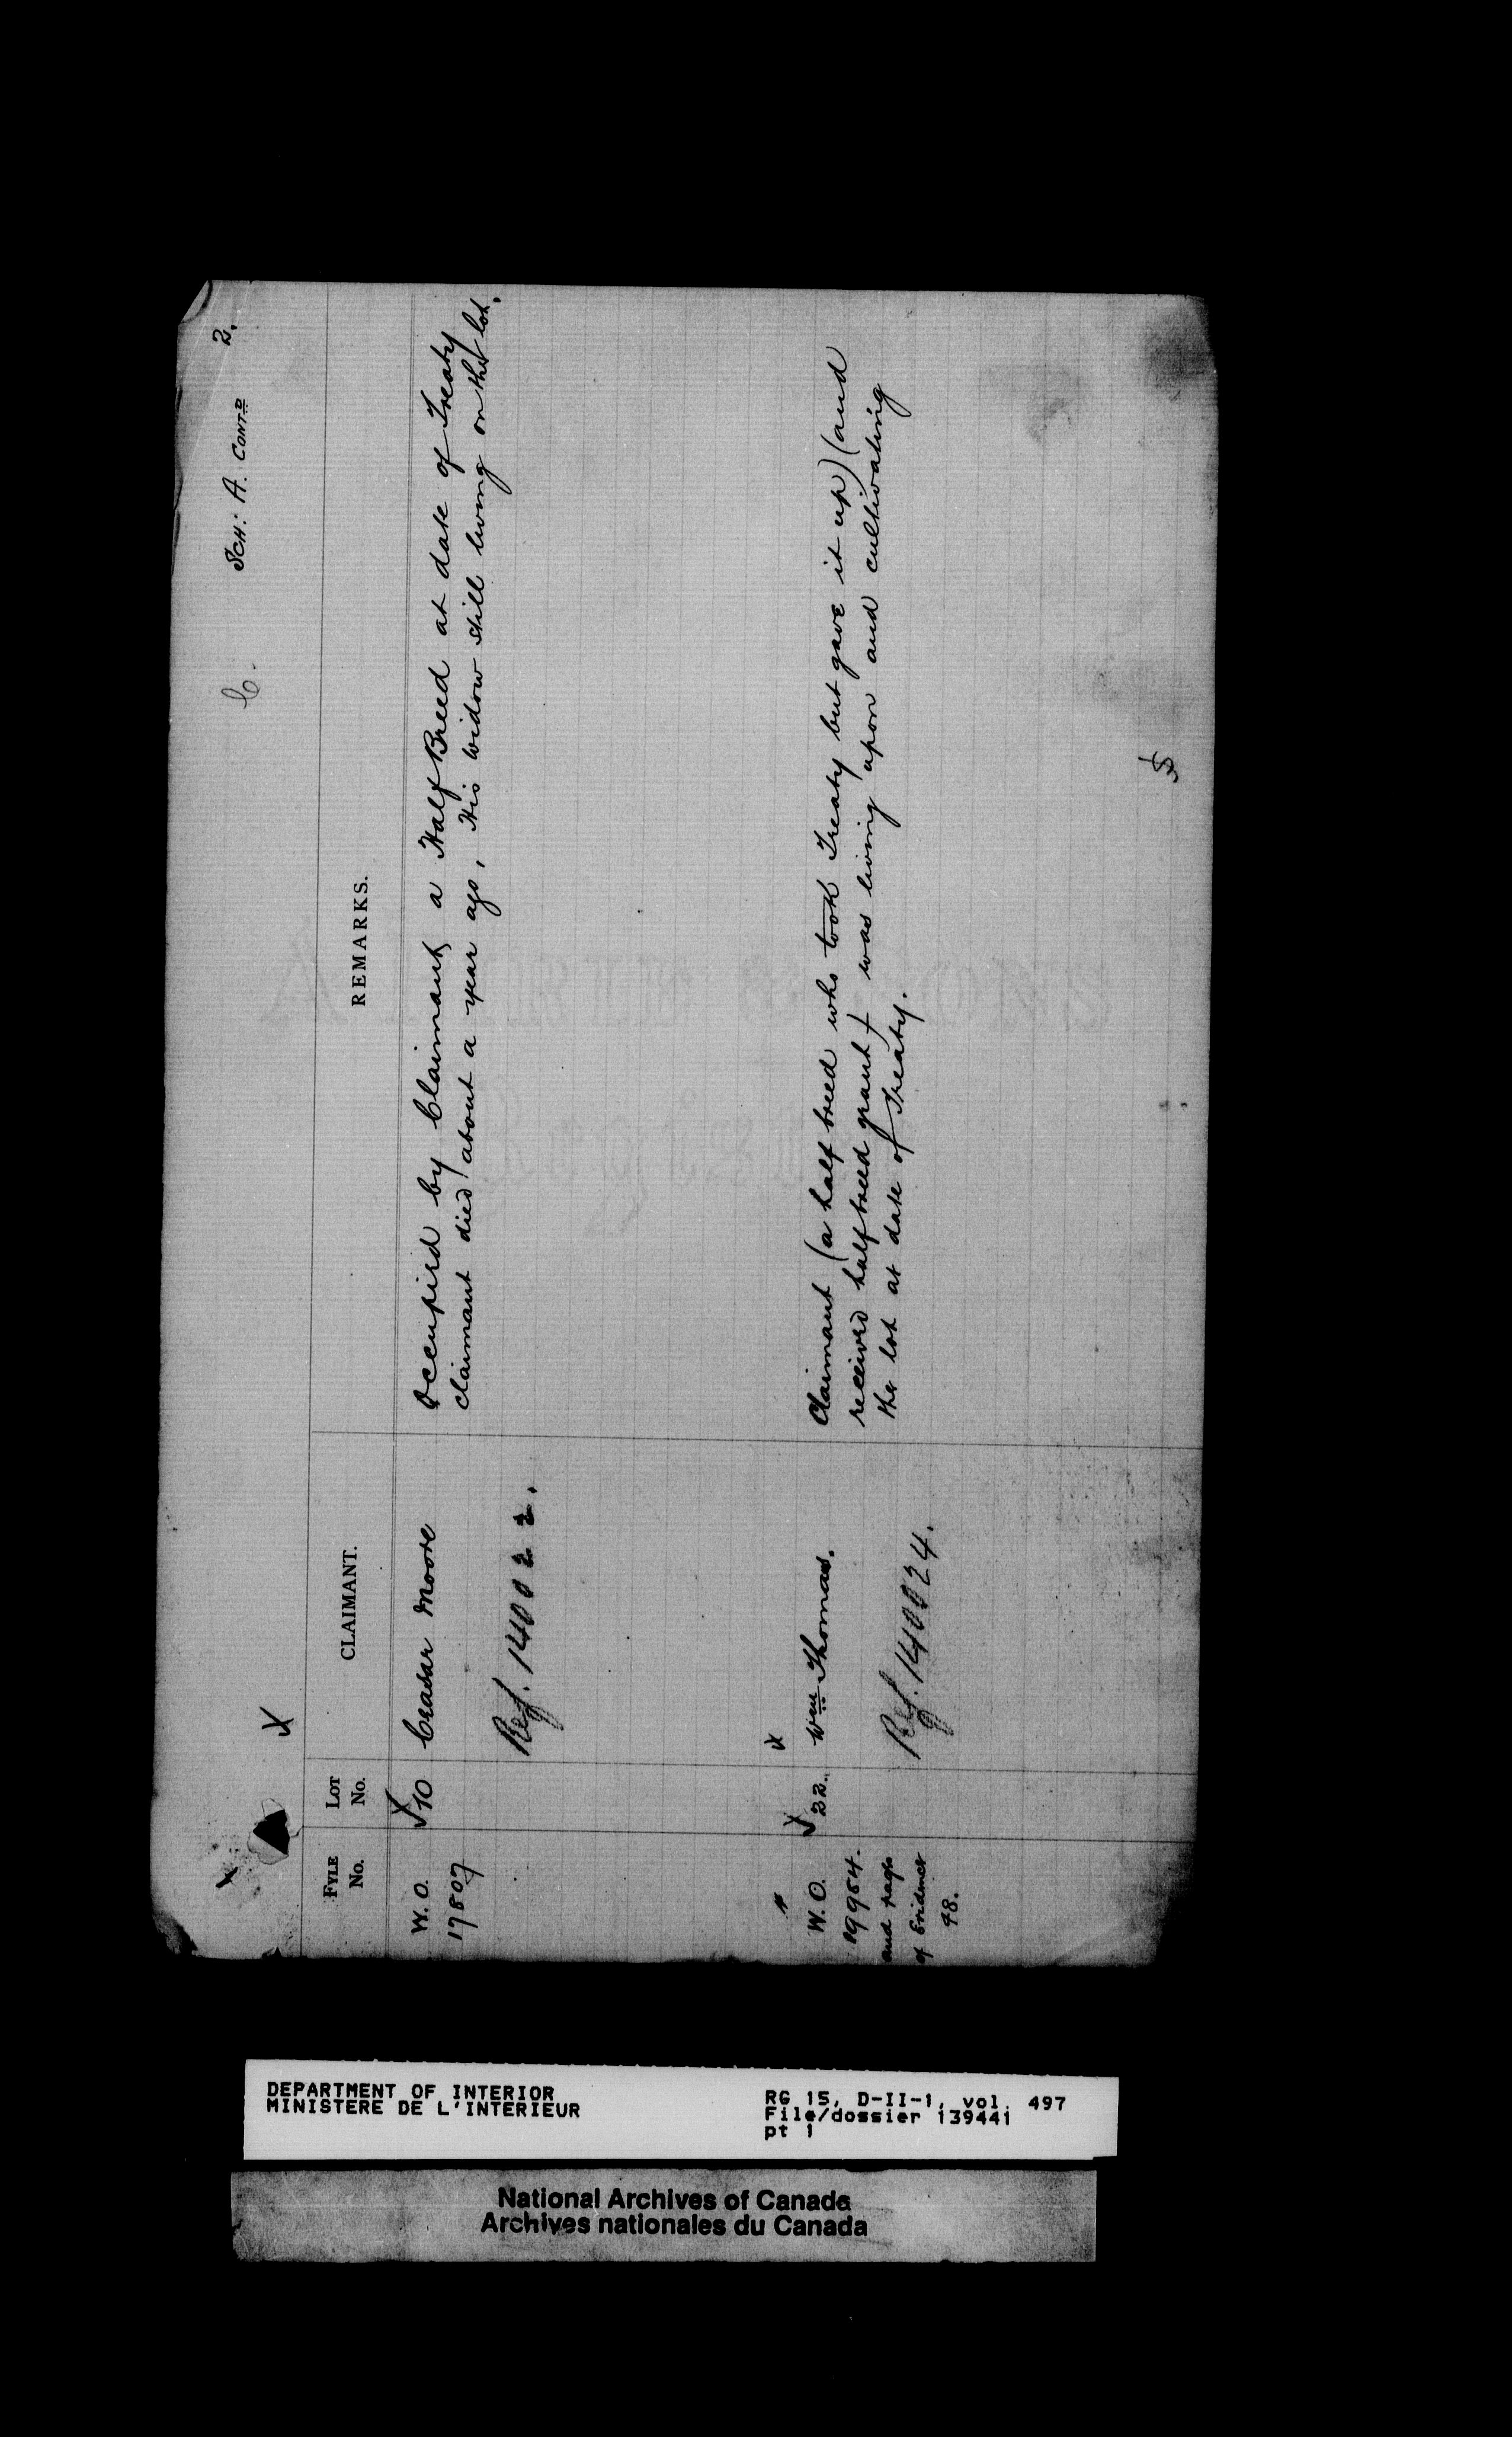 C.
SCH: A. CONTD
2.
FYLE No.
LOT No.
CLAIMANT.
REMARKS.
W.O.
17807
10
Ceasar Moore
Ref. 140022.
Occupied by Claimant a Half Breed at date of Treaty
claimant died about a year ago, His widow still living on the lot.
W.O.
19954.
and page
of Evidence
48.
22.
Wm Thomas.
Ref. 140024.
Claimant (a half breed who took Treaty but gave it up) (and
received half breed grant) was living upon and cultivating
the lot at date of Treaty.
DEPARTMENT OF INTERIOR
MINISTERE DE L'INTERIEUR
RG 15, D-II-1, vol. 497
File/dossier 139441
pt 1
National Archives of Canada
Archives nationales du Canada